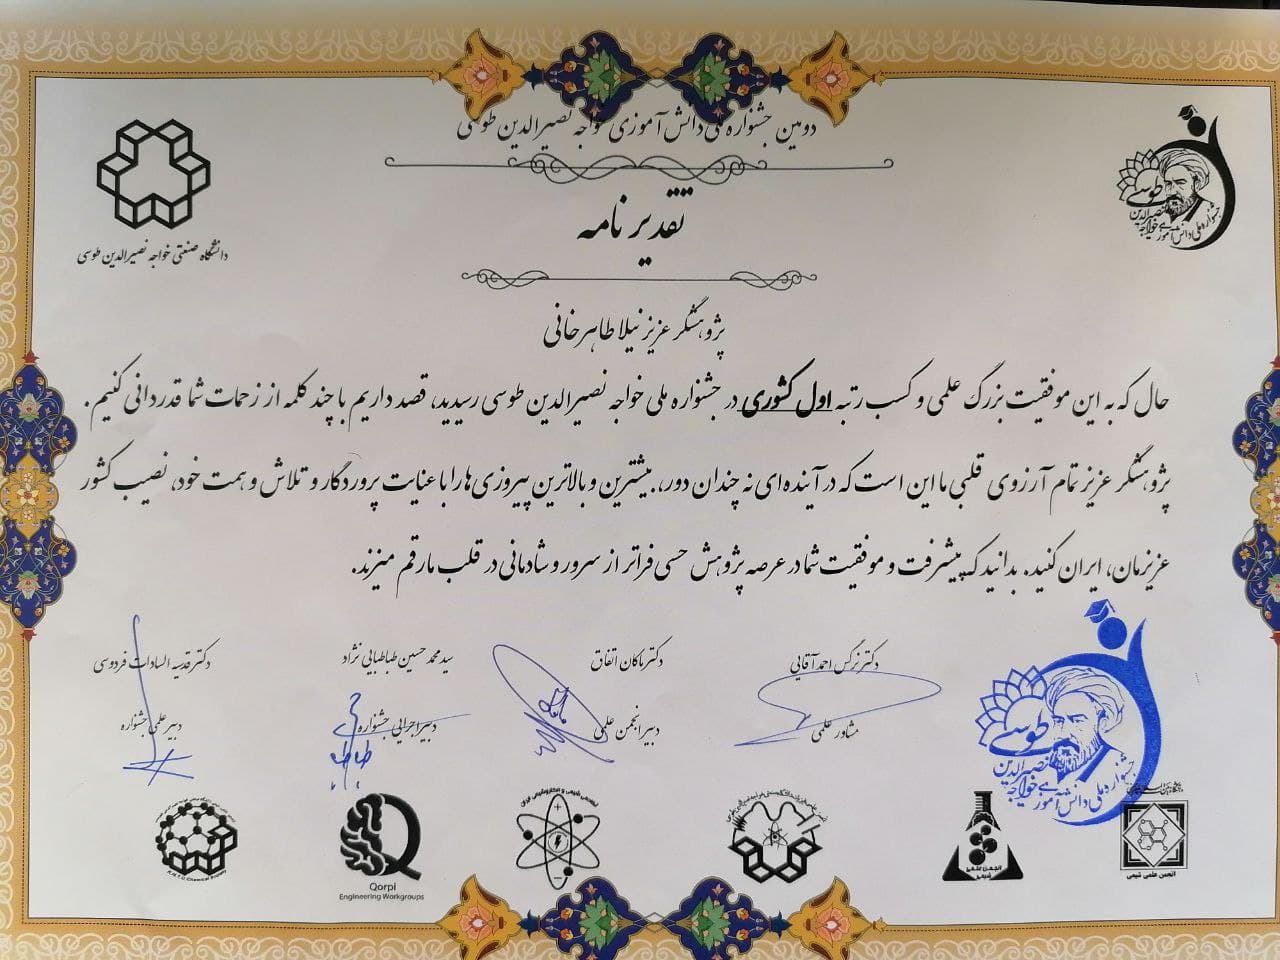 دومین جشنواره ملی دانش آموزی خواجه نصیرالدین طوسی
دانشگاه صنعتی خواجه نصیرالدین طوسی
طوسی
جشنواره ملی دانش آموزی
خواجه نصیرالدین
تقدیر نامه
پژوهشگر عزیز نیلا طاهرخانی
حال که به این موفقیت بزرگ علمی و کسب رتبه اول کشوری در جشنواره ملی خواجه نصیرالدین طوسی رسیدید، قصد داریم با چند کلمه از زحمات شما قدردانی کنیم.
پژوهشگر عزیز تمام آرزوی قلبی ما این است که در آینده ای نه چندان دور، بیشترین و بالاترین پیروزی ها را با عنایت پروردگار و تلاش و همت خود، نصیب کشور
عزیزمان، ایران کنید. بدانید که پیشرفت و موفقیت شما در عرصه پژوهش حسی فراتر از سرور و شادمانی در قلب ما رقم میزند.
دکتر نرگس احمدآقایی
دکتر ماکان اتفاق
سید محمد حسین طباطبایی نژاد
دکتر قدسیه السادات فردوسی
مشاور علمی
دبیر انجمن علمی
دبیر اجرایی جشنواره
دبیر علمی جشنواره
طوسی
جشنواره ملی دانش آموزی
خواجه نصیرالدین
انجمن علمی شیمی
انجمن علمی
شیمی
Qorpi
Engineering Workgroups
K.N.T.U Chemical Society